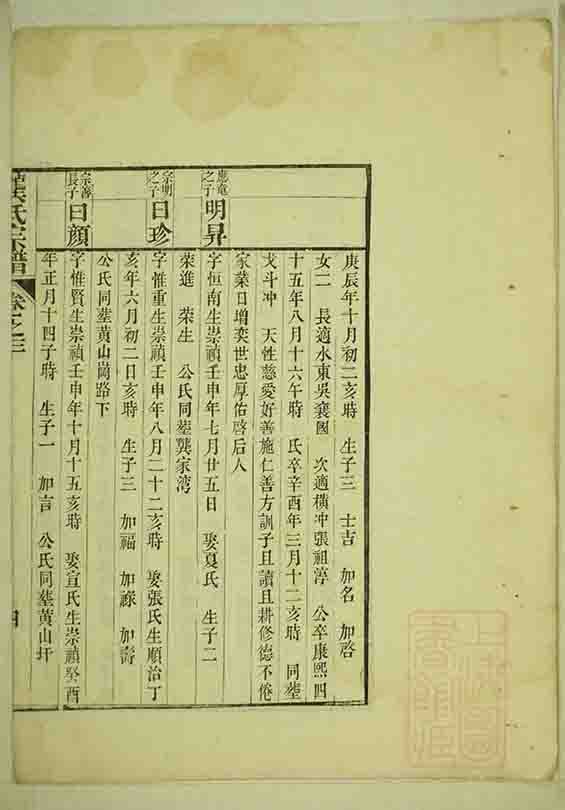 庚辰年十月初二亥時　生子三　士吉　加名　加啓
女二　長適水東吳襄國　次適橫冲張祖淳　公卒康熙四
十五年八月十六午時　氏卒辛酉年三月十二亥時　同塟
戈斗冲　天性慈愛好善施仁善方訓子且讀且耕修德不倦
家業日增奕世忠厚佑啓后人
應竜之子　明昇　字恒南生崇禎壬申年七月廿五日　娶夏氏　生子二
榮進　榮生　公氏同塟龔家湾
宗明之子　曰珍　字惟重生崇禎壬申年八月二十二亥時　娶張氏生順治丁
亥年六月初二日亥時　生子三　加福　加祿　加壽
公氏同塟黃山崗路下
宗淳長子　曰顏　字惟賢生崇禎壬申年十月十五亥時　娶宣氏生崇禎癸酉
年正月十四子時　生子一　加言　公氏同塟黃山圩
龔氏宗譜　卷之三